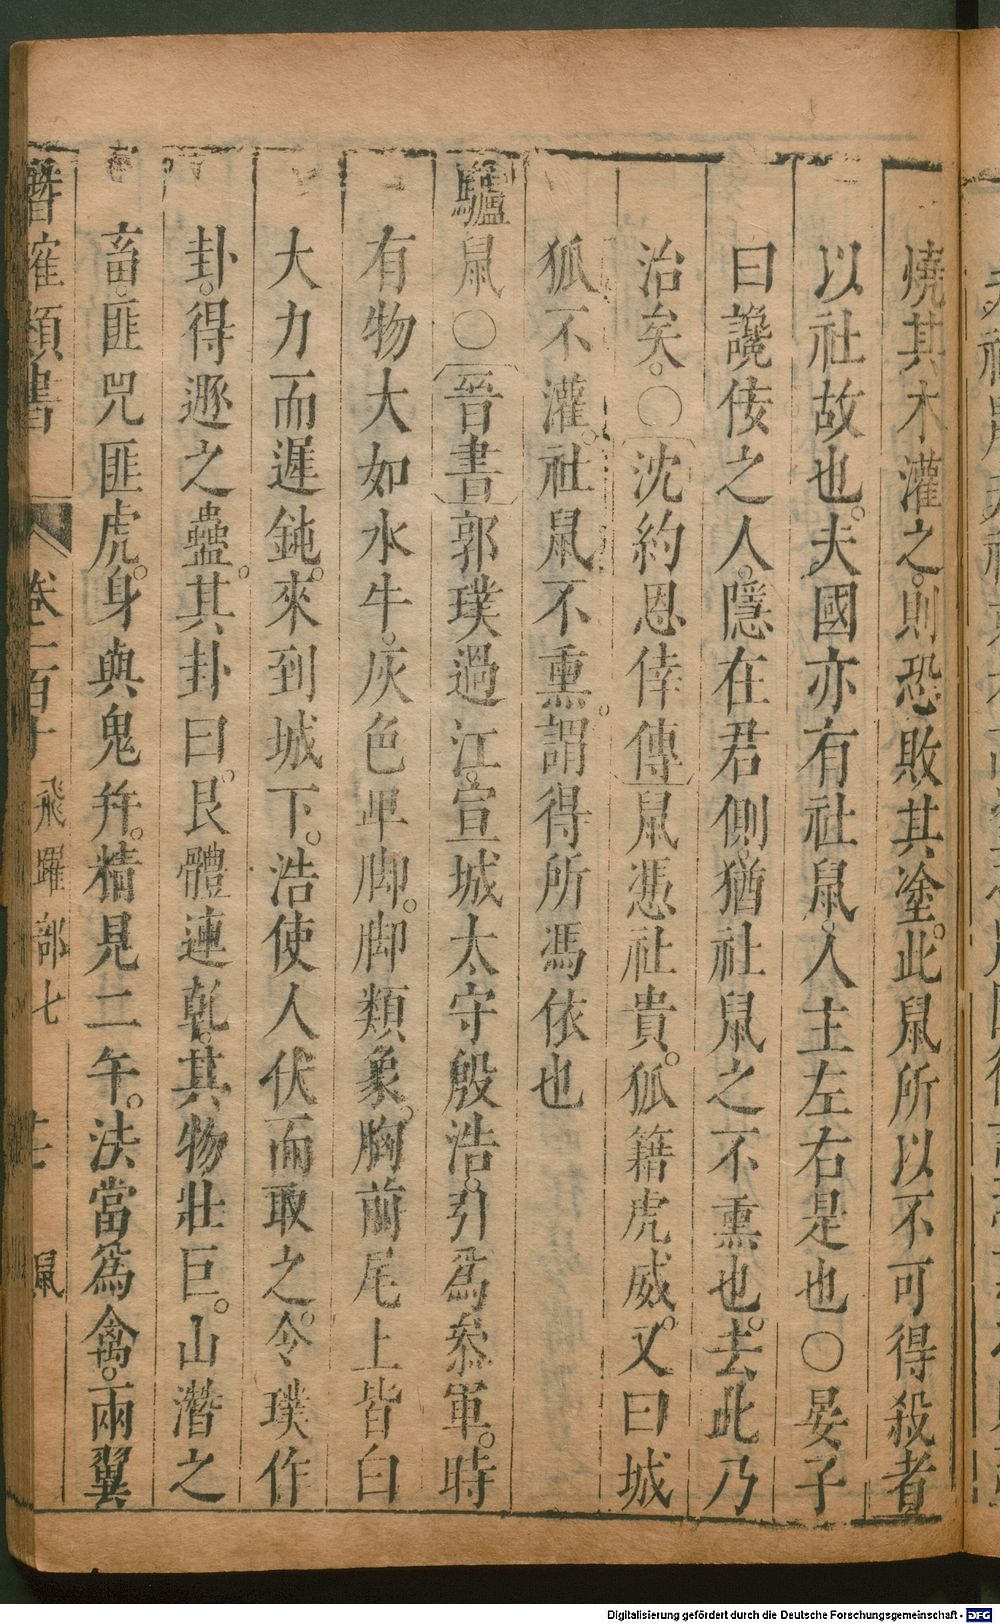 燒其木灌之則恐敗其塗此鼠所以不可得殺者
以社故也夫國亦有社鼠人主左右是也○晏子
曰讒佞之人隱在君側猶社鼠之不熏也去此乃
治矣○沈約恩倖傳鼠憑社貴狐籍虎威又曰城
狐不灌社鼠不熏謂得所馮依也
驢鼠○晉書郭璞過江宣城太守殷浩引爲叅軍時
有物大如水牛灰色卑脚脚類象胸前尾上皆白
大力而遲鈍來到城下浩使人伏而取之令璞作
卦得遯之蠱其卦曰艮體連乾其物壯巨山潛之
畜匪兕匪虎身與鬼幷精見二午法當爲禽兩翼
潛確類書 卷一百十 飛躍部七 鼠
Digitalisierung gefördert durch die Deutsche Forschungsgemeinschaft - DFG